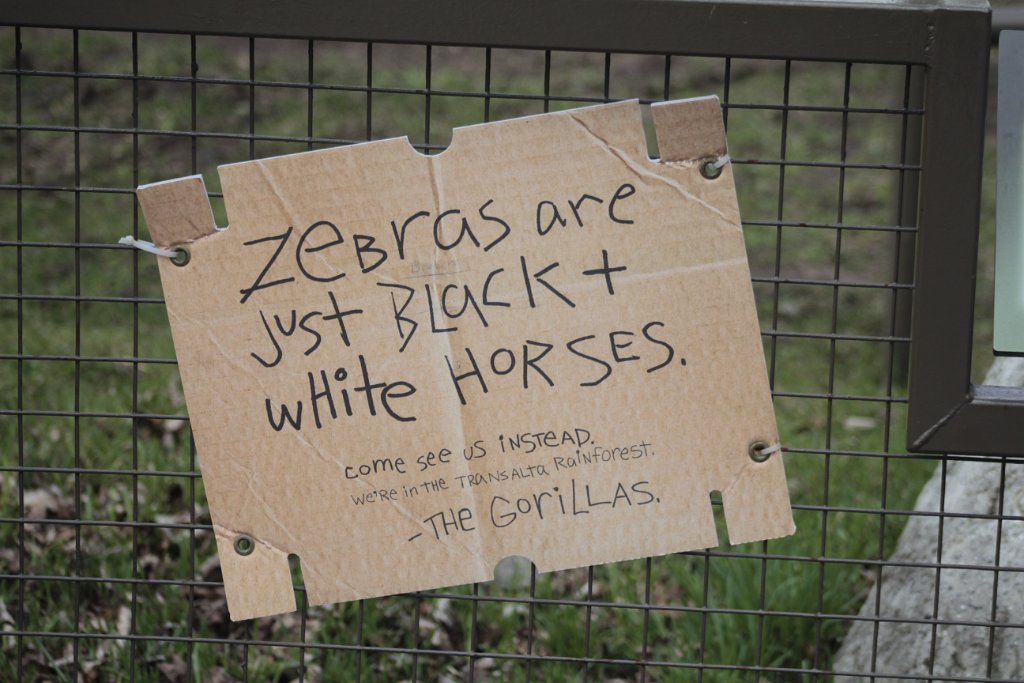 ZEBRAS are
just BLACK +
wHite HORSES.
come see us INSTEAD.
we're in the TRANSALTA RAINFOREST.
- THE GORILLAS.